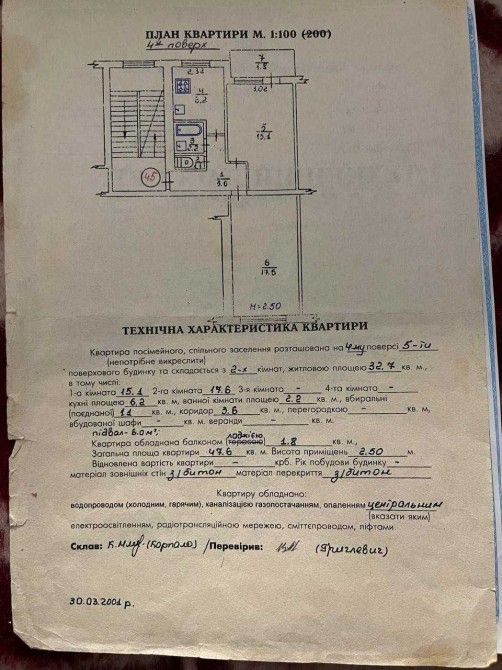 ПЛАН КВАРТИРИ М. 1:100 (200)
4й поверх
2.32
7
1.8
1.02
4
6.2
5
15.1
3
2.2
2
1.1
45
1
3.6
6
17.6
H=2.50
ТЕХНІЧНА ХАРАКТЕРИСТИКА КВАРТИРИ
Квартира посімейного, спільного заселення розташована на 4му поверсі 5-ти
(непотрібне викреслити)
поверхового будинку та складається з 2-х кімнат, житловою площею 32.7 кв. м.,
в тому числі:
1-а кімната 15.1 2-га кімната 17.6 3-я кімната - 4-та кімната -
кухні площею 6.2 кв. м, ванної кімнати площі 2.2 кв. м., вбиральні
(поєднаної) 1.1 кв. м., коридор 3.6 кв. м, перегородкою - кв. м,
вбудованої шафи - кв. м. веранди - кв. м.
підвал- 6.0 м²
лоджією
Квартира обладнана балконом (терасою) 1.8 кв. м.,
Загальна площа квартири 47.6 кв. м. Висота приміщень 2.50 м.
Відновлена вартість квартири - крб. Рік побудови будинку -
матеріал зовнішніх стін з/битон матеріал перекриття з/битон
Квартиру обладнано:
водопроводом (холодним, гарячим), каналізацією газопостачанням, опаленням центральним
(вказати яким)
електроосвітленням, радіотрансляційною мережею, сміттєпроводом, ліфтами
Склав: (Карпало) /Перевірив: (Григлевич)
30.03.2001 р.